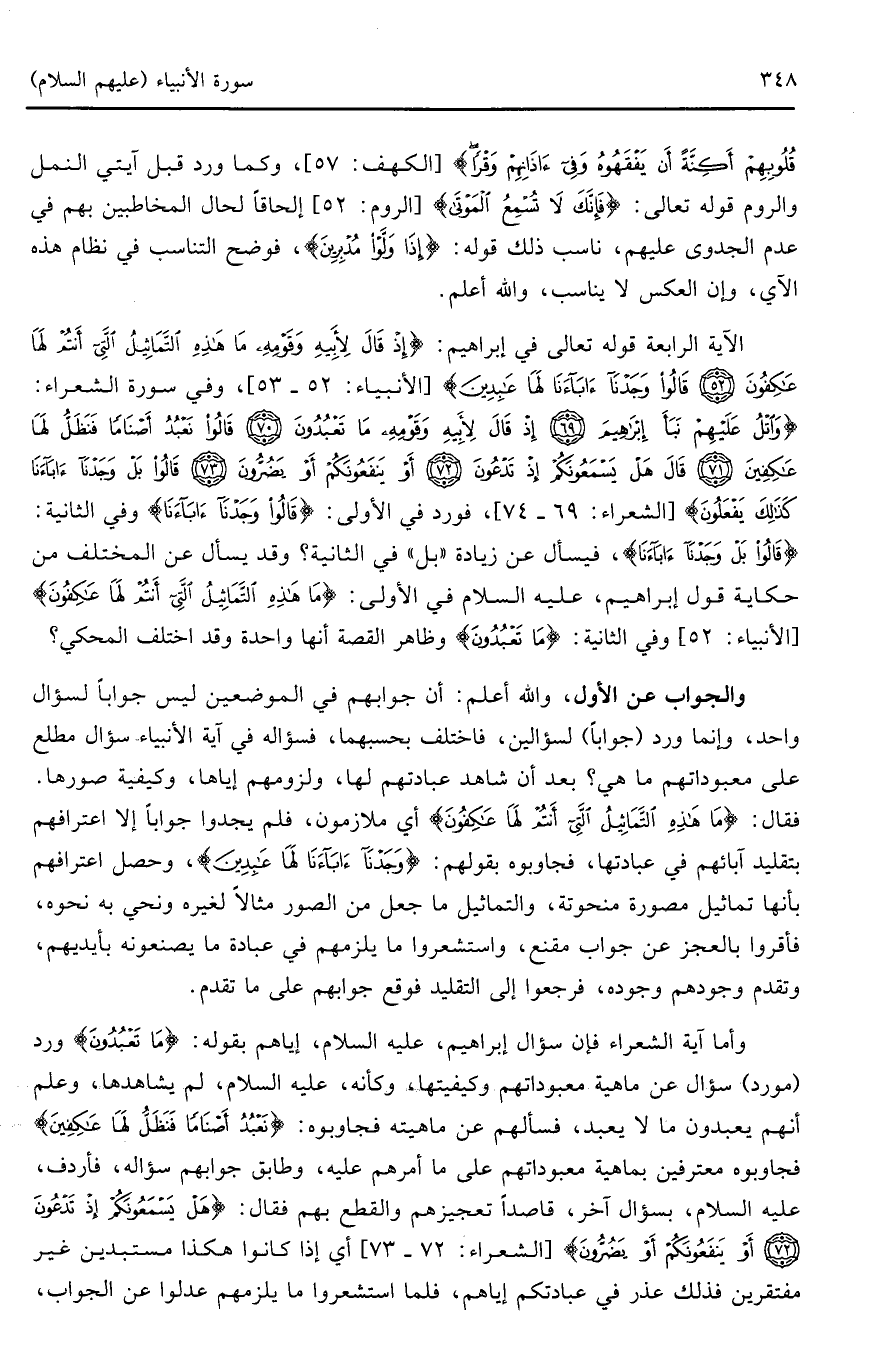 ٣٤٨ سورة الأنبياء (عليهم السلام)
قُلُوبِهِمْ أَكِنَّةً أَن يَفْقَهُوهُ وَفِىٓ ءَاذَانِهِمْ وَقْرًاۖ﴾ [الكهف: ٥٧]، وكما ورد قبل آيتي النمل
والروم قوله تعالى: ﴿فَإِنَّكَ لَا تُسْمِعُ ٱلْمَوْتَىٰ﴾ [الروم: ٥٢] إلحاقاً لحال المخاطبين بهم في
عدم الجدوى عليهم، ناسب ذلك قوله: ﴿إِذَا وَلَّوْا۟ مُدْبِرِينَ﴾، فوضح التناسب في نظام هذه
الآي، وإن العكس لا يناسب، والله أعلم.
الآية الرابعة قوله تعالى في إبراهيم: ﴿إِذْ قَالَ لِأَبِيهِ وَقَوْمِهِۦ مَا هَـٰذِهِ ٱلتَّمَاثِيلُ ٱلَّتِىٓ أَنتُمْ لَهَا
عَـٰكِفُونَ ﴿٥٢﴾ قَالُوا۟ وَجَدْنَآ ءَابَآءَنَا لَهَا عَـٰبِدِينَ﴾ [الأنبياء: ٥٢ ـ ٥٣]، وفي سورة الشعراء:
﴿وَٱتْلُ عَلَيْهِمْ نَبَأَ إِبْرَٰهِيمَ ﴿٦٩﴾ إِذْ قَالَ لِأَبِيهِ وَقَوْمِهِۦ مَا تَعْبُدُونَ ﴿٧٠﴾ قَالُوا۟ نَعْبُدُ أَصْنَامًا فَنَظَلُّ لَهَا
عَـٰكِفِينَ ﴿٧١﴾ قَالَ هَلْ يَسْمَعُونَكُمْ إِذْ تَدْعُونَ ﴿٧٢﴾ أَوْ يَنفَعُونَكُمْ أَوْ يَضُرُّونَ ﴿٧٣﴾ قَالُوا۟ بَلْ وَجَدْنَآ ءَابَآءَنَا
كَذَٰلِكَ يَفْعَلُونَ﴾ [الشعراء: ٦٩ ـ ٧٤]، فورد في الأولى: ﴿قَالُوا۟ وَجَدْنَآ ءَابَآءَنَا﴾ وفي الثانية:
﴿قَالُوا۟ بَلْ وَجَدْنَآ ءَابَآءَنَا﴾، فيسأل عن زيادة «بل» في الثانية؟ وقد يسأل عن المختلف من
حكاية قول إبراهيم، عليه السلام في الأولى: ﴿مَا هَـٰذِهِ ٱلتَّمَاثِيلُ ٱلَّتِىٓ أَنتُمْ لَهَا عَـٰكِفُونَ﴾
[الأنبياء: ٥٢] وفي الثانية: ﴿مَا تَعْبُدُونَ﴾ وظاهر القصة أنها واحدة وقد اختلف المحكي؟
والجواب عن الأول، والله أعلم: أن جوابهم في الموضعين ليس جواباً لسؤال
واحد، وإنما ورد (جواباً) لسؤالين، فاختلف بحسبهما، فسؤاله في آية الأنبياء سؤال مطلع
على معبوداتهم ما هي؟ بعد أن شاهد عبادتهم لها، ولزومهم إياها، وكيفية صورها.
فقال: ﴿مَا هَـٰذِهِ ٱلتَّمَاثِيلُ ٱلَّتِىٓ أَنتُمْ لَهَا عَـٰكِفُونَ﴾ أي ملازمون، فلم يجدوا جواباً إلا اعترافهم
بتقليد آبائهم في عبادتها، فجاوبوه بقولهم: ﴿وَجَدْنَآ ءَابَآءَنَا لَهَا عَـٰبِدِينَ﴾، وحصل اعترافهم
بأنها تماثيل مصورة منحوتة، والتماثيل ما جعل من الصور مثالاً لغيره ونحي به نحوه،
فأقروا بالعجز عن جواب مقنع، واستشعروا ما يلزمهم في عبادة ما يصنعونه بأيديهم،
وتقدم وجودهم وجوده، فرجعوا إلى التقليد فوقع جوابهم على ما تقدم.
وأما آية الشعراء فإن سؤال إبراهيم، عليه السلام، إياهم بقوله: ﴿مَا تَعْبُدُونَ﴾ ورد
(مورد) سؤال عن ماهية معبوداتهم وكيفيتها، وكأنه، عليه السلام، لم يشاهدها، وعلم
أنهم يعبدون ما لا يعبد، فسألهم عن ماهيته فجاوبوه: ﴿نَعْبُدُ أَصْنَامًا فَنَظَلُّ لَهَا عَـٰكِفِينَ﴾
فجاوبوه معترفين بماهية معبوداتهم على ما أمرهم عليه، وطابق جوابهم سؤاله، فأردف،
عليه السلام، بسؤال آخر، قاصداً تعجيزهم والقطع بهم فقال: ﴿هَلْ يَسْمَعُونَكُمْ إِذْ تَدْعُونَ
﴿٧٢﴾ أَوْ يَنفَعُونَكُمْ أَوْ يَضُرُّونَ﴾ [الشعراء: ٧٢ ـ ٧٣] أي إذا كانوا هكذا مستبدين غير
مفتقرين فذلك عذر في عبادتكم إياهم، فلما استشعروا ما يلزمهم عدلوا عن الجواب،